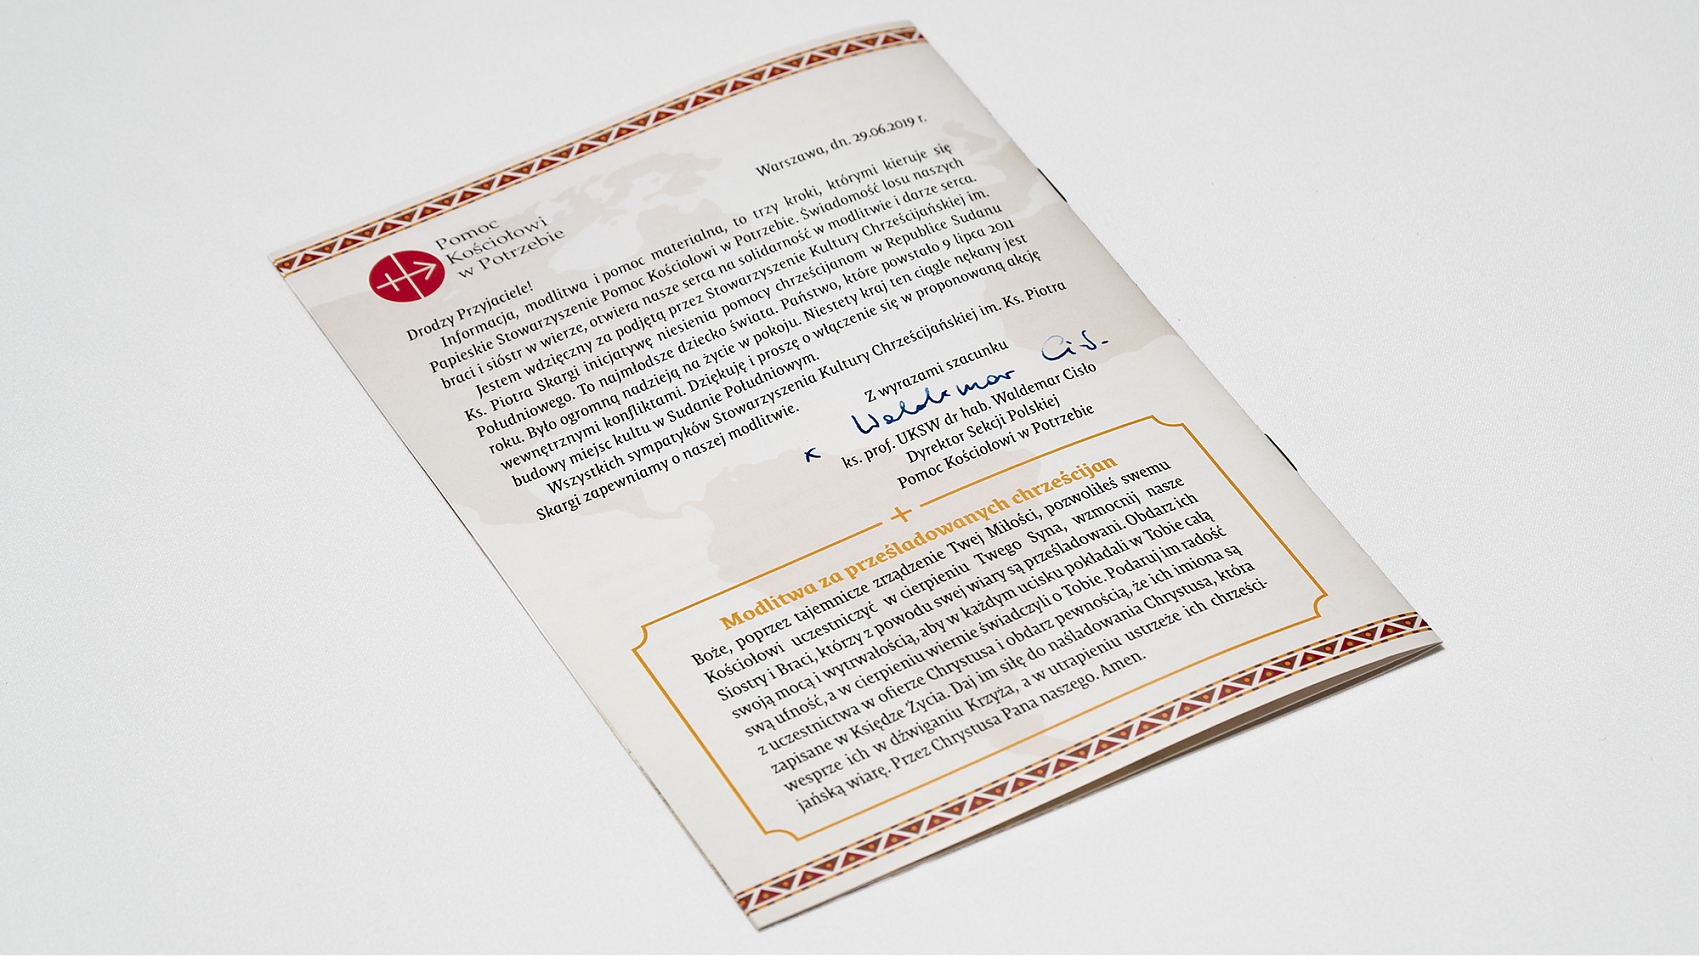 Pomoc
Kościołowi
w Potrzebie
Warszawa, dn. 29.06.2019 r.
Drodzy Przyjaciele!
Informacja, modlitwa i pomoc materialna, to trzy kroki, którymi kieruje się
Papieskie Stowarzyszenie Pomoc Kościołowi w Potrzebie. Świadomość losu naszych
braci i sióstr w wierze, otwiera nasze serca na solidarność w modlitwie i darze serca.
Jestem wdzięczny za podjętą przez Stowarzyszenie Kultury Chrześcijańskiej im.
Ks. Piotra Skargi inicjatywę niesienia pomocy chrześcijanom w Republice Sudanu
Południowego. To najmłodsze dziecko świata. Państwo, które powstało 9 lipca 2011
roku. Było ogromną nadzieją na życie w pokoju. Niestety kraj ten ciągle nękany jest
wewnętrznymi konfliktami. Dziękuję i proszę o włączenie się w proponowaną akcję
budowy miejsc kultu w Sudanie Południowym.
Wszystkich sympatyków Stowarzyszenia Kultury Chrześcijańskiej im. Ks. Piotra
Skargi zapewniamy o naszej modlitwie.
Z wyrazami szacunku
x Waldemar Cisło
ks. prof. UKSW dr hab. Waldemar Cisło
Dyrektor Sekcji Polskiej
Pomoc Kościołowi w Potrzebie
Modlitwa za prześladowanych chrześcijan
Boże, poprzez tajemnicze zrządzenie Twej Miłości, pozwoliłeś swemu
Kościołowi uczestniczyć w cierpieniu Twego Syna, wzmocnij nasze
Siostry i Braci, którzy z powodu swej wiary są prześladowani. Obdarz ich
swoją mocą i wytrwałością, aby w każdym ucisku pokładali w Tobie całą
swą ufność, a w cierpieniu wiernie świadczyli o Tobie. Podaruj im radość
z uczestnictwa w ofierze Chrystusa i obdarz pewnością, że ich imiona są
zapisane w Księdze Życia. Daj im siłę do naśladowania Chrystusa, która
wesprze ich w dźwiganiu Krzyża, a w utrapieniu ustrzeże ich chrześci-
jańską wiarę. Przez Chrystusa Pana naszego. Amen.